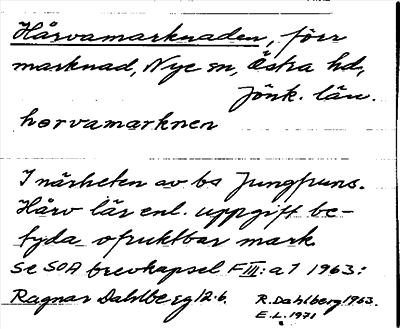 Hårvamarknaden, förr
marknad, Nye sn, Östra hd,
Jönk. län.
horvamarknen
I närheten av bs Jungfruns.
Hårv lär enl. uppgift be-
tyda ofruktbar mark.
Se SOA brevkapsel F III: a 7 1963:
Ragnar Dahlberg 12.6.
R. Dahlberg 1963.
E.L. 1971